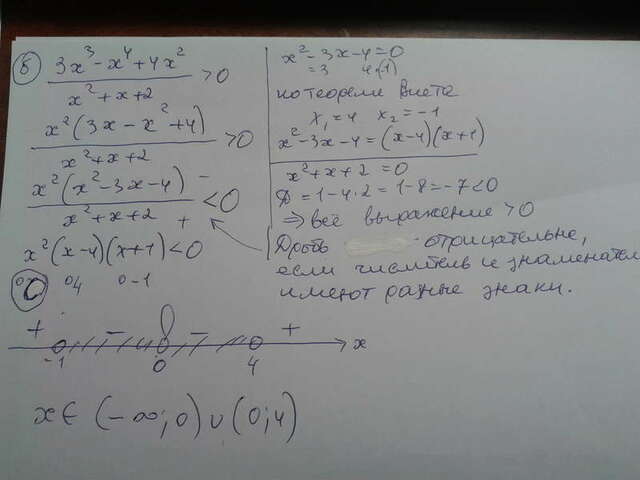 б) (3x³ - x⁴ + 4x²)/(x² + x + 2) > 0
(x²(3x - x² + 4))/(x² + x + 2) > 0
(x²(x² - 3x - 4))/(x² + x + 2) < 0
- +
x²(x-4)(x+1) < 0
0 4 0 -1
+ - - +
-1 0 4 x
x ∈ (-∞; 0) ∪ (0; 4)
x² - 3x - 4 = 0
= 3 4 (1)
по теореме Виета
x₁ = 4 x₂ = -1
x² - 3x - 4 = (x-4)(x+1)
x² + x + 2 = 0
D = 1 - 4·2 = 1 - 8 = -7 < 0
⇒ всё выражение > 0
Дробь отрицательне,
если числитель и знаменател
имеют разные знаки.